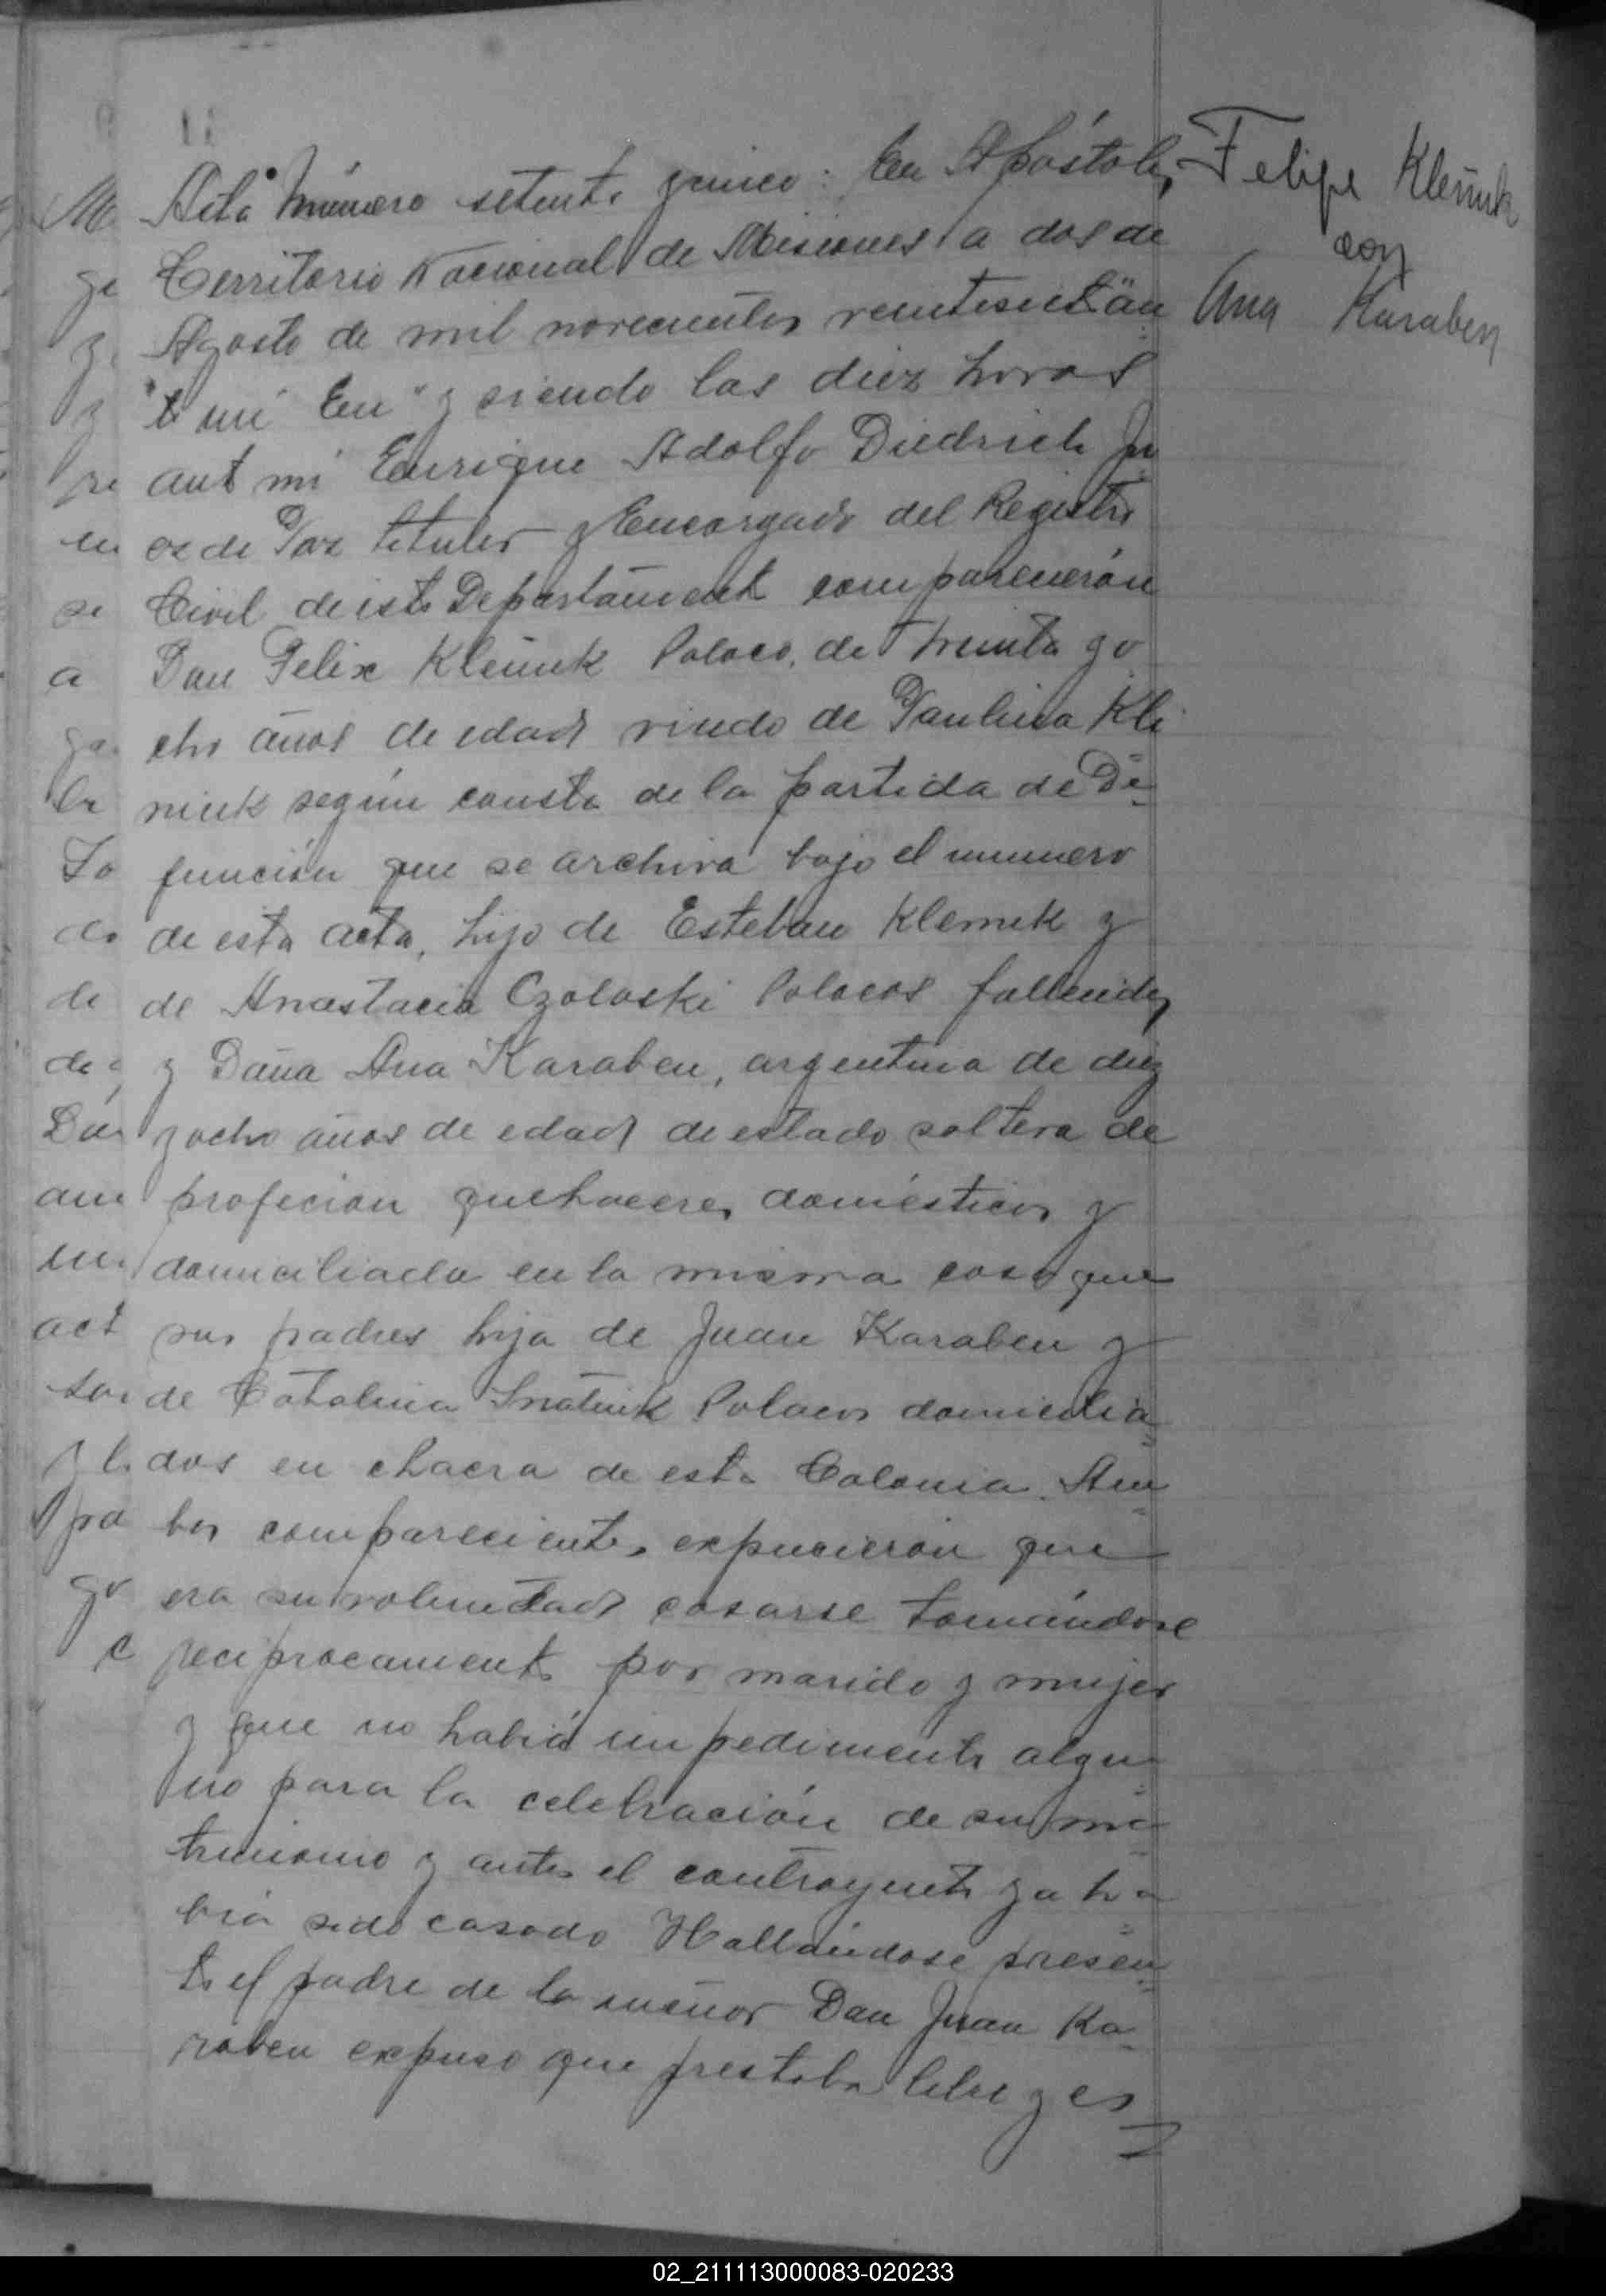 Felipe Klemuk
con
Ana Karaben
Acta Número setenta y cinco: En Apóstoles,
Territorio Nacional de Misiones a dos de
Agosto de mil novecientos veintisiet "an
"t mi En" y siendo las diez horas
ant mi Enrique Adolfo Diedrich Ju
ez de Paz titular y Encargado del Registro
Civil de este Departament comparecierón
Don Felix Klemuk Polaco, de treinta y o
cho años de edad viudo de Paulina Kle
niuk según consta de la partida de De-
función que se archiva bajo el numero
de esta acta, hijo de Esteban Klemuk y
de Anastacia Czoloski Polacos fallecidos
y Doña Ana Karaben, argentina de diez
y ocho años de edad de estado soltera de
profecion quehaceres domésticos y
domiciliada en la misma casa que
sus padres hija de Juan Karaben y
de Catalina Polacos domicilia-
dos en chacra de esta Colonia. Am-
bos comparecientes expucieron que
era su voluntad casarse tomándose
reciprocament por marido y mujer
y que no habiá impedimento algu-
no para la celebración de su ma-
trimonio y antes el contrayente ya ha-
biá sido casado Hallándose presen-
te el padre de la menor Don Juan Ka-
raben expuso que prestaba libre y es
02_211113000083-020233